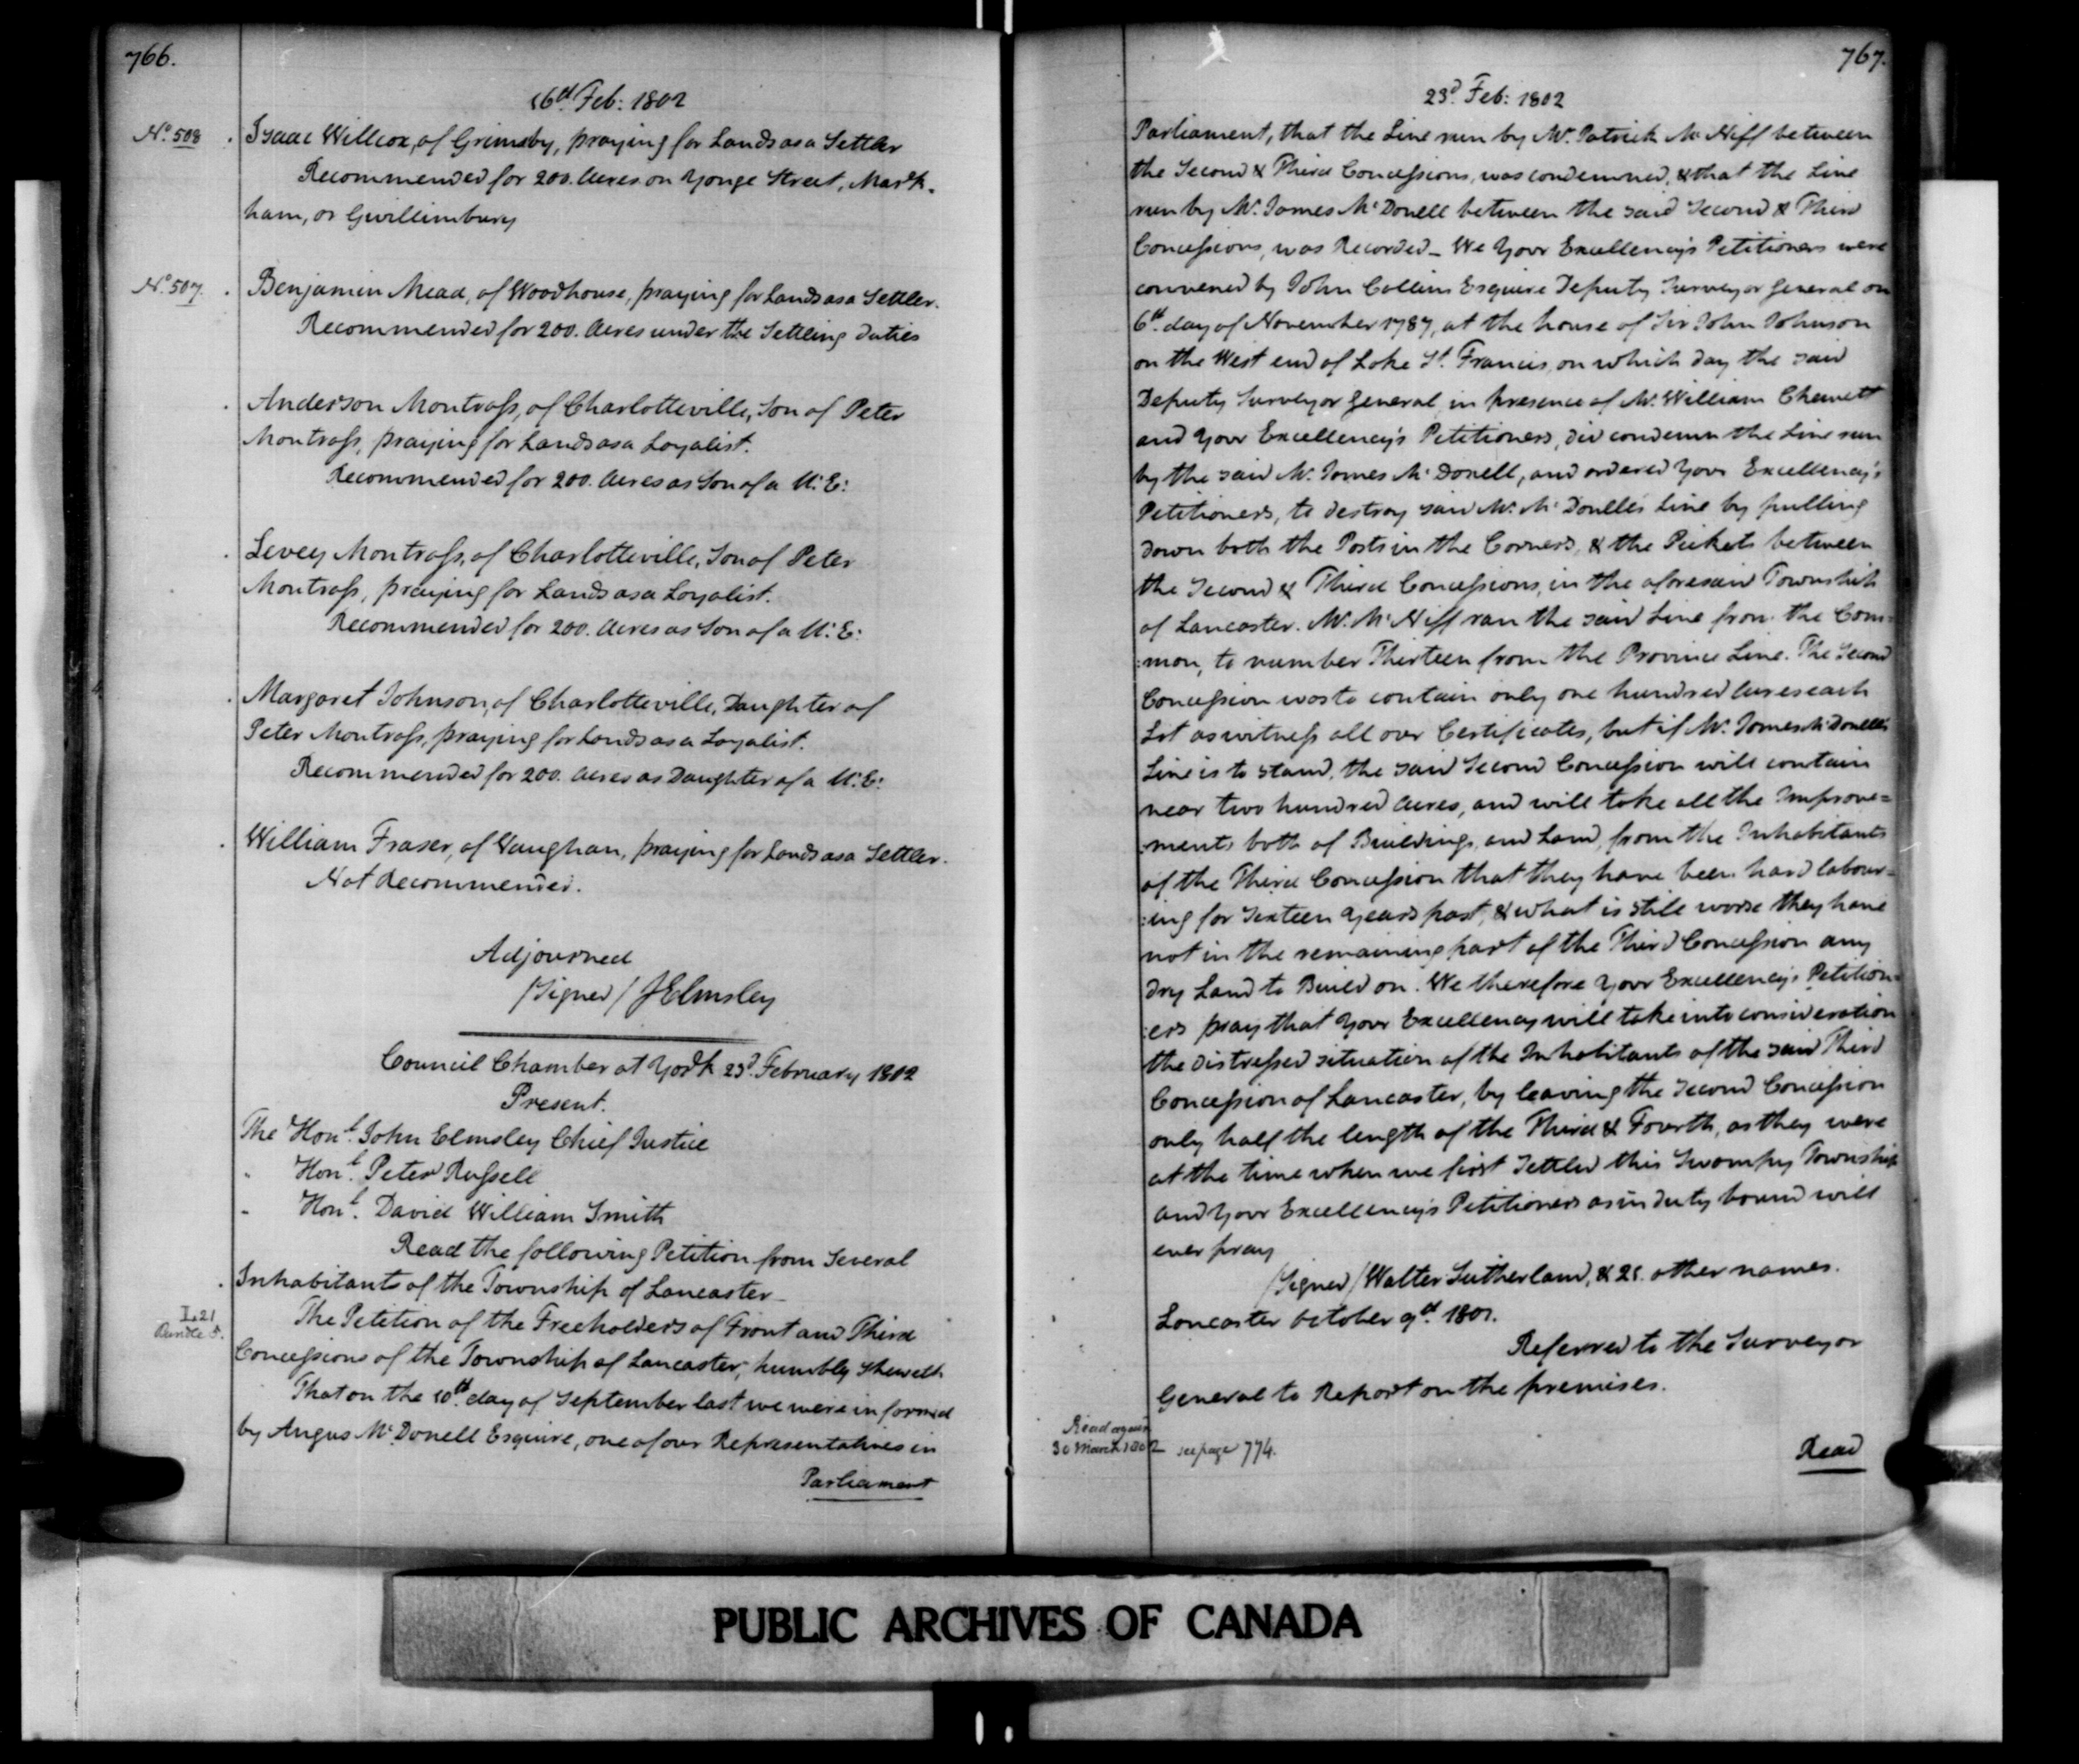 766.
16th Feb: 1802
No. 508 Isaac Willcox, of Grimsby, praying for Lands as a Settler
Recommended for 200. Acres on Yonge Street, Mark-
ham, or Gwillimbury
No. 507. Benjamin Mead, of Woodhouse, praying for Lands as a Settler.
Recommended for 200. Acres under the Settling duties
Anderson Montross, of Charlotteville, Son of Peter
Montross, praying for Lands as a Loyalist.
Recommended for 200. Acres as Son of a U: E:
Levey Montross, of Charlotteville, Son of Peter
Montross, praying for Lands as a Loyalist.
Recommended for 200. Acres as Son of a U: E:
Margaret Johnson, of Charlotteville, Daughter of
Peter Montross, praying for Lands as a Loyalist.
Recommended for 200. Acres as Daughter of a U: E:
William Fraser, of Vaughan, praying for Lands as a Settler.
Not Recommended.
Adjourned
/Signed/ J Elmsley
Council Chamber at York 23d. February 1802
Present.
The Honl. John Elmsley Chief Justice
" Honl. Peter Russell
" Honl. David William Smith
Read the following Petition from Several
Inhabitants of the Township of Lancaster_
L. 21
The Petition of the Freeholders of Front and Third
Concessions of the Township of Lancaster, humbly Sheweth
That on the 10th. day of September last we were informed
by Angus Mc.Donell Esquire, one of our Representatives in
Parliament
767.
23d. Feb: 1802
Parliament, that the Line run by Mr. Patrick Mc.Niff between
the Second & Third Concessions, was condemned, & that the Line
run by Mr. James Mc.Donell between the said Second & Third
Concessions, was Recorded_ We Your Excellency's Petitioners were
convened by John Collins Esquire Deputy Surveyor General on
6th. day of November 1787, at the house of Sir John Johnson
on the West end of Lake St. Francis, on which day the said
Deputy Surveyor General in presence of Mr. William Chewett
and Your Excellency's Petitioners, did condemn the Line run
by the said Mr. James Mc.Donell, and ordered Your Excellency's
Petitioners, to destroy said Mr. Mc.Donell's Line by pulling
down both the Posts in the Corners, & the Pickets between
the Second & Third Concessions, in the aforesaid Township
of Lancaster. Mr. Mc.Niff ran the said Line from the Com=
:mon, to number Thirteen from the Province Line. The Second
Concession was to contain only one hundred Acres each
Lot as witness all our Certificates, but if Mr. James Mc.Donell's
Line is to stand, the said Second Concession will contain
near two hundred Acres, and will take all the Improve=
:ments both of Buildings and Land, from the Inhabitants
of the Third Concession that they have been hard labour=
:ing for Sixteen Years past, & what is still worse they have
not in the remaining part of the Third Concession any
dry Land to Build on. We therefore Your Excellency's Petition=
:ers pray that Your Excellency will take into consideration
the distressed situation of the Inhabitants of the said Third
Concession of Lancaster, by leaving the Second Concession
only half the length of the Third & Fourth, as they were
at the time when we first Settled this Swampy Township
and Your Excellency's Petitioners as in duty bound will
ever pray
/Signed/ Walter Sutherland, & 21. other names.
Lancaster October 9th. 1801.
Referred to the Surveyor
General to Report on the premises.
Read again
30 March 1802 see page 774.
Read
PUBLIC ARCHIVES OF CANADA